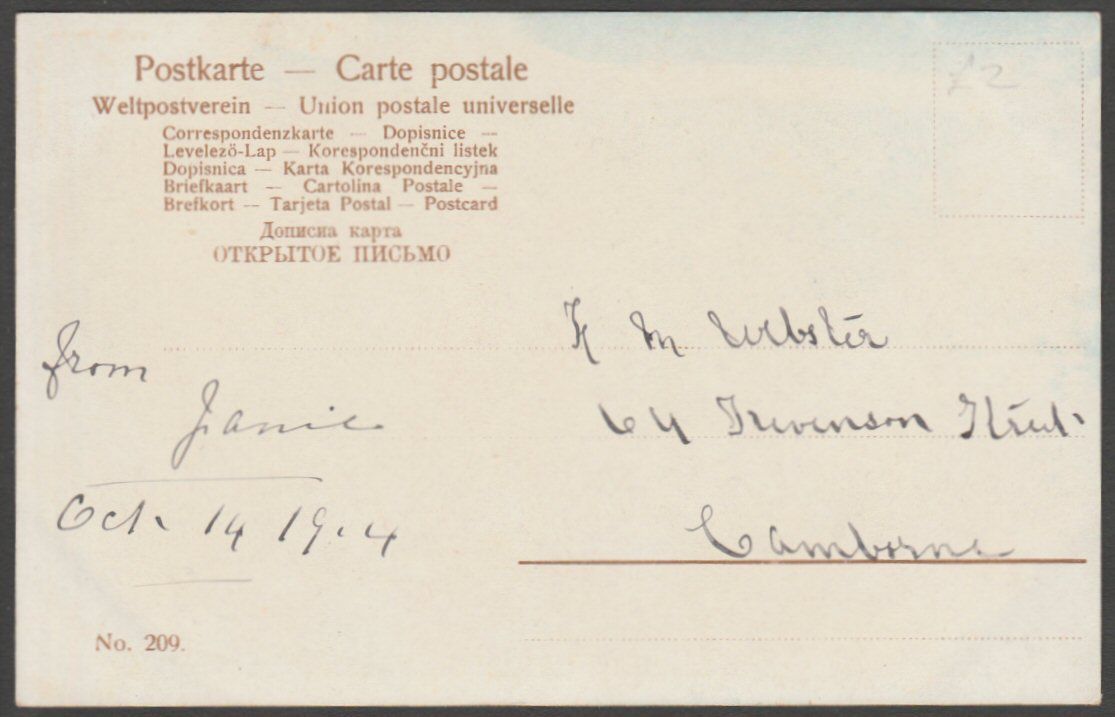 Postkarte — Carte postale
Weltpostverein — Union postale universelle
Correspondenzkarte — Dopisnice —
Levelező-Lap — Korespondenčni listek
Dopisnica — Karta Korespondencyjna
Briefkaart — Cartolina Postale —
Brefkort — Tarjeta Postal — Postcard
Дописна карта
ОТКРЫТОЕ ПИСЬМО
£2
K M Webster
64 Trevenson Street
Camborne
from
Janie
Oct. 14 19.4
No. 209.